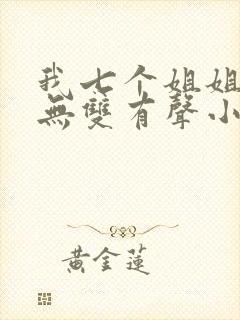 我七个姐姐
無雙有聲小
黃金蓮